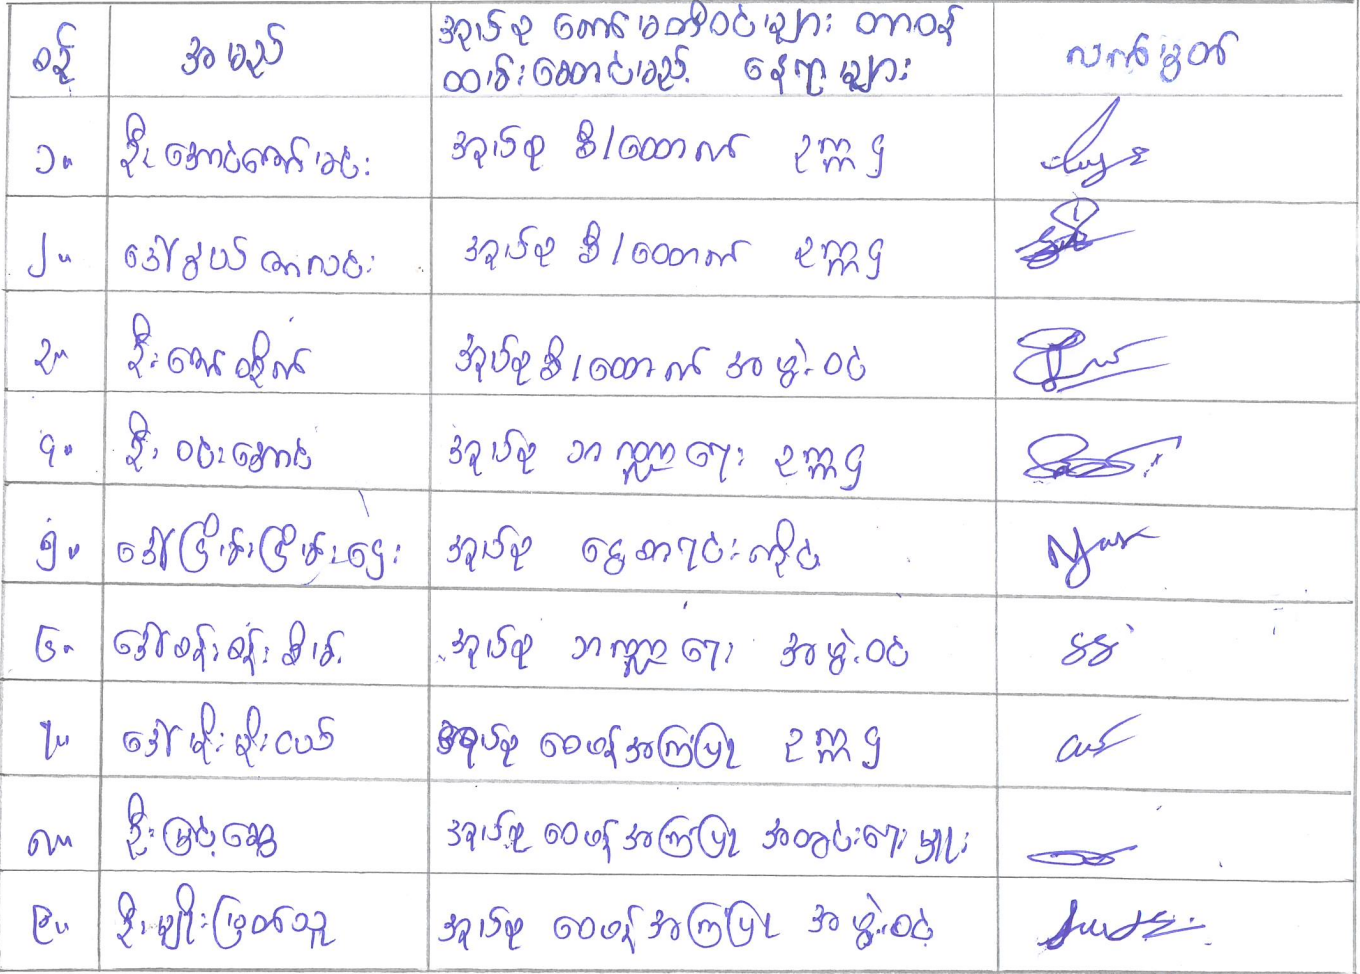 စဉ်
အမည်
အုပ်စု ကော်မတီဝင်များ တာဝန်
ထမ်းဆောင်မည့် နေရာများ
လက်မှတ်
၁။ ဦးအောင်ကျော်မင်း အုပ်စု စီ/ထောက် ဥက္ကဋ္ဌ
၂။ ဒေါ်နွယ် အုပ်စု စီ/ထောက် ဥက္ကဋ္ဌ
၃။ ဦးကျော်ထိုက် အုပ်စု စီ/ထောက် အဖွဲ့ဝင်
၄။ ဦးဝင်းအောင် အုပ်စု ဘဏ္ဍာရေး ဥက္ကဋ္ဌ
၅။ ဒေါ်ငြိမ်းငြိမ်းဌေး အုပ်စု ငွေစာရင်းကိုင်
၆။ ဒေါ်စန်းစန်းစိမ့် အုပ်စု ဘဏ္ဍာရေး အဖွဲ့ဝင်
၇။ ဒေါ်မိုးမိုးငယ် အုပ်စု ဝေဖန်အကြံပြု ဥက္ကဋ္ဌ
၈။ ဦးမြင့်ဆွေ အုပ်စု ဝေဖန်အကြံပြု အတွင်းရေးမှူး
၉။ ဦးမျိုးမြတ်သူ အုပ်စု ဝေဖန်အကြံပြု အဖွဲ့ဝင်